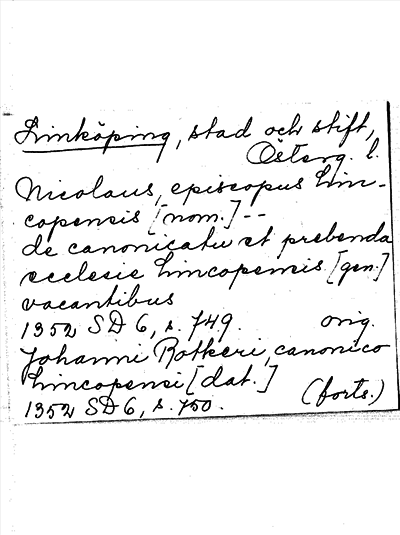 Linköping, stad och stift,
Österg. l.
Nicolaus, episcopus Lin-
copensis [nom.] --
de canonicatu et prebenda
ecclesie Lincopensis [gen.]
vacantibus
1352 SD 6, s. 749. orig.
Johanni Rotkeri, canonico
Lincopensi [dat.]
1352 SD 6, s. 750. (forts.)